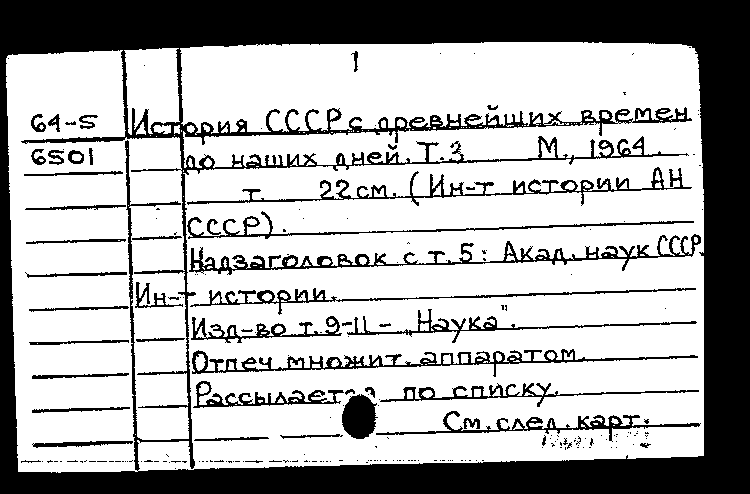 1
64-5 История СССР с древнейших времен
6501 до наших дней. Т.3 М., 1964.
т. 22 см. (Ин-т истории АН
СССР).
Надзаголовок с т.5: Акад. наук СССР.
Ин-т истории.
Изд-во т.9-11 - „Наука".
Отпеч. множит. аппаратом.
Рассылается по списку.
См. след. карт.